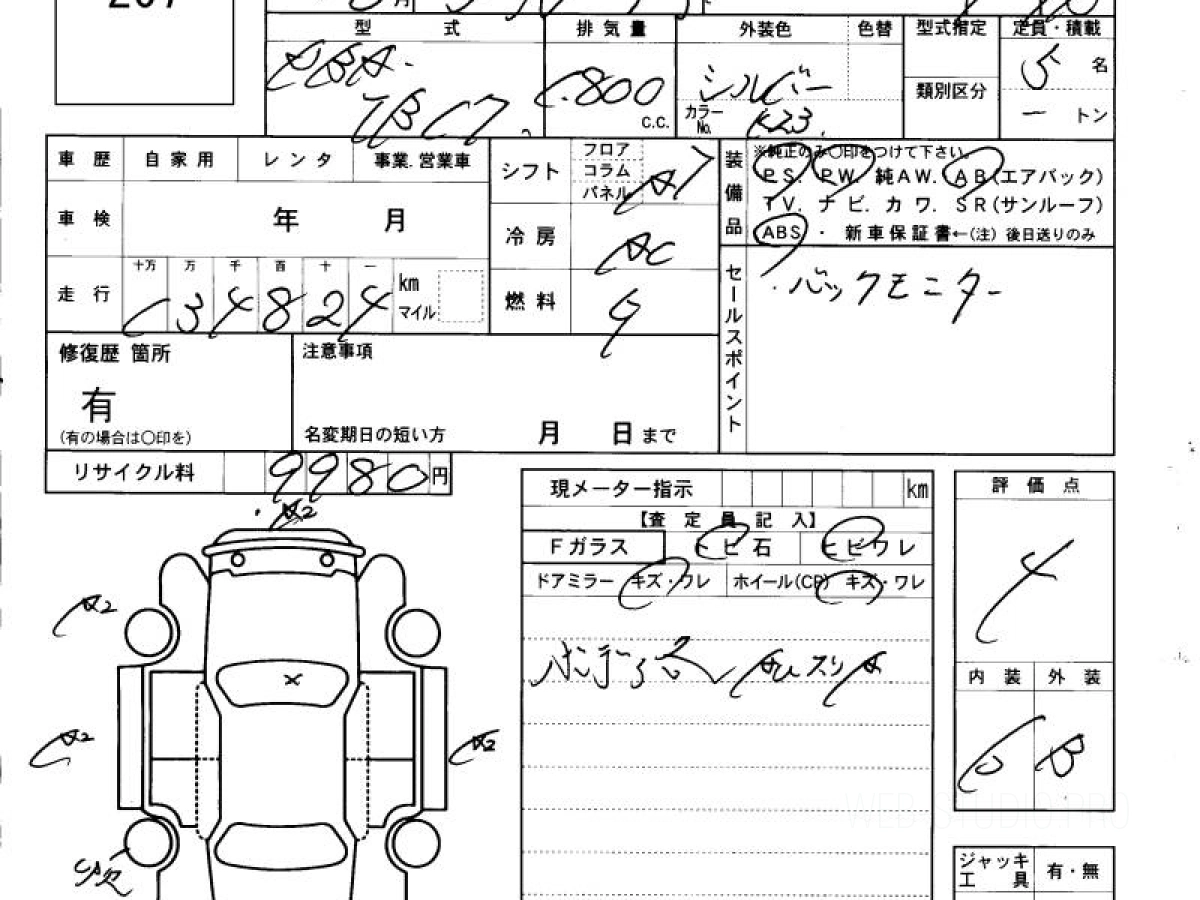 型 式 排 気 量 外装色 色替 型式指定 定員・積載
DBA- 1800 C.C. シルバー 類別区分 5 名
TBC17 カラーNo. K23 ー トン
車 歴 自 家 用 レ ン タ 事業.営業車
シフト フロア コラム パネル AT
装備品 ※純正のみ〇印をつけて下さい。
PS. PW. 純AW. AB(エアバック)
TV. ナ ビ. カ ワ. SR(サンルーフ)
ABS ・ 新車保証書←(注) 後日送りのみ
車 検 年 月
冷 房 AC
走 行 十万 万 千 百 十 一 km マイル
134824
燃 料 G
セールスポイント ・バックモニター
修復歴 箇所
有
(有の場合は〇印を)
注意事項
名変期日の短い方 月 日 まで
リサイクル料 9980 円
現メーター指示 km
【査 定 員 記 入】
Fガラス トビ石 ヒビワレ
ドアミラー キズ・ワレ ホイール(CP) キズ・ワレ
評 価 点
4
内 装 外 装
B
ジャッキ 工 具 有・無
A2
A2
A2
A2
X
WEB STUDIO PRO